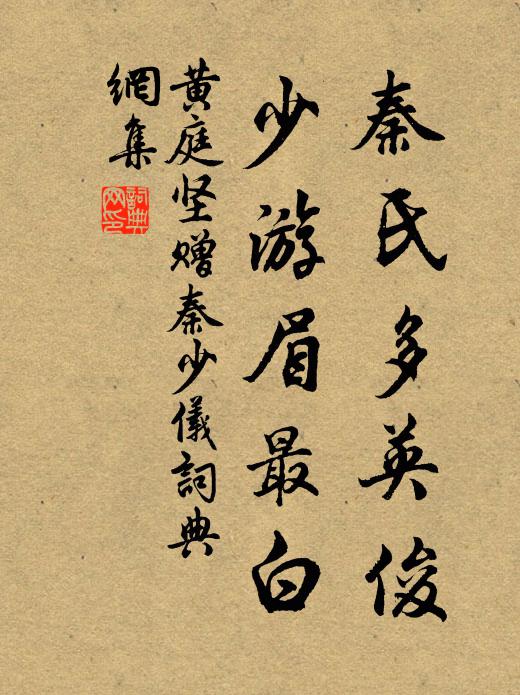 秦氏多英俊
少游眉最白
黄庭坚赠秦少儀詞典
網集
詞典
网印